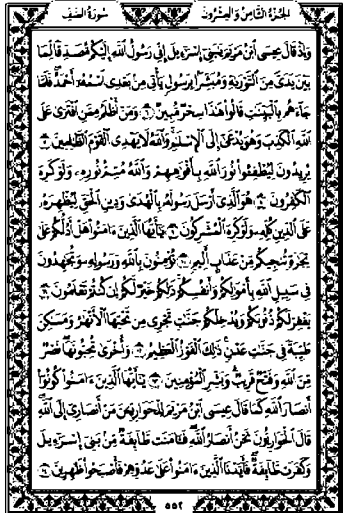 الجزء الثامن والعشرون
سورة الصف
وَإِذْ قَالَ عِيسَى ابْنُ مَرْيَمَ يَٰبَنِىٓ إِسْرَٰٓءِيلَ إِنِّى رَسُولُ ٱللَّهِ إِلَيْكُم مُّصَدِّقًا لِّمَا
بَيْنَ يَدَىَّ مِنَ ٱلتَّوْرَىٰةِ وَمُبَشِّرًۢا بِرَسُولٍ يَأْتِى مِنۢ بَعْدِى ٱسْمُهُۥٓ أَحْمَدُ فَلَمَّا
جَآءَهُم بِٱلْبَيِّنَٰتِ قَالُوا۟ هَٰذَا سِحْرٌ مُّبِينٌ ٦ وَمَنْ أَظْلَمُ مِمَّنِ ٱفْتَرَىٰ عَلَى
ٱللَّهِ ٱلْكَذِبَ وَهُوَ يُدْعَىٰٓ إِلَى ٱلْإِسْلَٰمِ وَٱللَّهُ لَا يَهْدِى ٱلْقَوْمَ ٱلظَّٰلِمِينَ ٧
يُرِيدُونَ لِيُطْفِـُٔوا۟ نُورَ ٱللَّهِ بِأَفْوَٰهِهِمْ وَٱللَّهُ مُتِمُّ نُورِهِۦ وَلَوْ كَرِهَ
ٱلْكَٰفِرُونَ ٨ هُوَ ٱلَّذِىٓ أَرْسَلَ رَسُولَهُۥ بِٱلْهُدَىٰ وَدِينِ ٱلْحَقِّ لِيُظْهِرَهُۥ
عَلَى ٱلدِّينِ كُلِّهِۦ وَلَوْ كَرِهَ ٱلْمُشْرِكُونَ ٩ يَٰٓأَيُّهَا ٱلَّذِينَ ءَامَنُوا۟ هَلْ أَدُلُّكُمْ عَلَىٰ
تِجَٰرَةٍ تُنجِيكُم مِّنْ عَذَابٍ أَلِيمٍ ١٠ تُؤْمِنُونَ بِٱللَّهِ وَرَسُولِهِۦ وَتُجَٰهِدُونَ
فِى سَبِيلِ ٱللَّهِ بِأَمْوَٰلِكُمْ وَأَنفُسِكُمْ ذَٰلِكُمْ خَيْرٌ لَّكُمْ إِن كُنتُمْ تَعْلَمُونَ ١١
يَغْفِرْ لَكُمْ ذُنُوبَكُمْ وَيُدْخِلْكُمْ جَنَّٰتٍ تَجْرِى مِن تَحْتِهَا ٱلْأَنْهَٰرُ وَمَسَٰكِنَ
طَيِّبَةً فِى جَنَّٰتِ عَدْنٍ ذَٰلِكَ ٱلْفَوْزُ ٱلْعَظِيمُ ١٢ وَأُخْرَىٰ تُحِبُّونَهَا نَصْرٌ
مِّنَ ٱللَّهِ وَفَتْحٌ قَرِيبٌ وَبَشِّرِ ٱلْمُؤْمِنِينَ ١٣ يَٰٓأَيُّهَا ٱلَّذِينَ ءَامَنُوا۟ كُونُوٓا۟
أَنصَارَ ٱللَّهِ كَمَا قَالَ عِيسَى ٱبْنُ مَرْيَمَ لِلْحَوَارِيِّـۧنَ مَنْ أَنصَارِىٓ إِلَى ٱللَّهِ
قَالَ ٱلْحَوَارِيُّونَ نَحْنُ أَنصَارُ ٱللَّهِ فَـَٔامَنَت طَّآئِفَةٌ مِّنۢ بَنِىٓ إِسْرَٰٓءِيلَ
وَكَفَرَت طَّآئِفَةٌ فَأَيَّدْنَا ٱلَّذِينَ ءَامَنُوا۟ عَلَىٰ عَدُوِّهِمْ فَأَصْبَحُوا۟ ظَٰهِرِينَ ١٤
٥٥٢